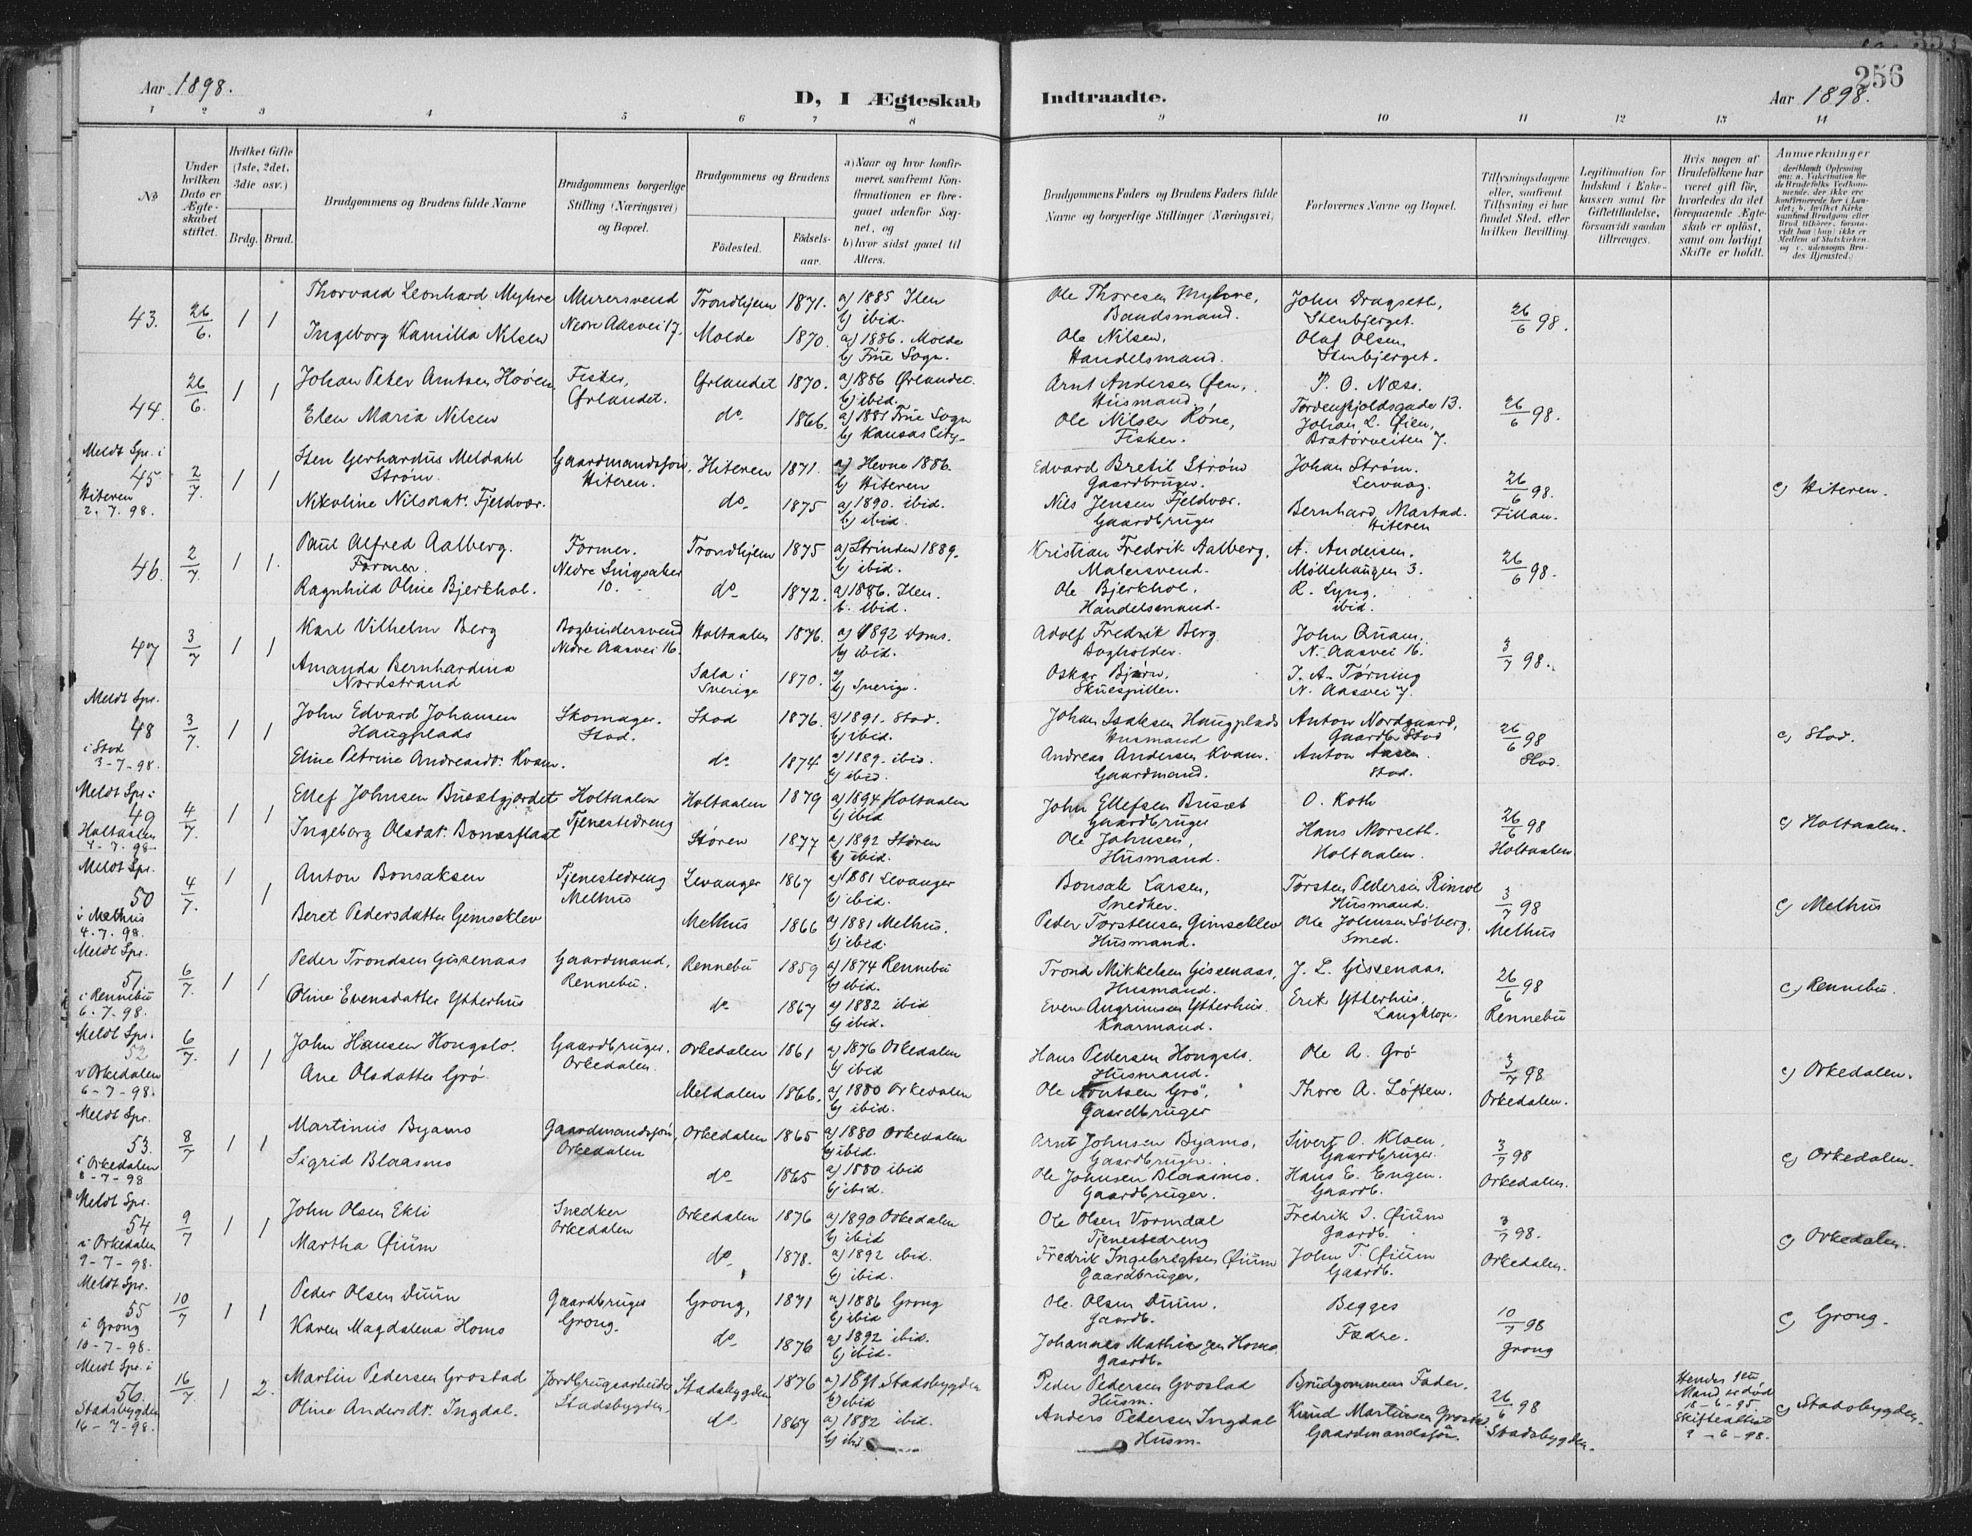 256
Aar 1898.
D, I Ægteskab Indtraadte.
Aar 1898.
1 2 3 4 5 6 7 8 9 10 11 12 13 14
No
Under hvilken Dato er Ægteskabet stiftet.
Hvilket Gifte (1ste, 2det, 3die osv.)
Brdg. Brud.
Brudgommens og Brudens fulde Navne
Brudgommens borgerlige Stilling (Næringsvei) og Bopæl.
Brudgommens og Brudens
Fødested. Fødselsaar.
a) Naar og hvor konfirmeret, saafremt Konfirmationen er foregaaet udenfor Sognet, og
b) hvor sidst gaaet til Alters.
Brudgommens Faders og Brudens Faders fulde Navne og borgerlige Stillinger (Næringsvei.)
Forlovernes Navne og Bopæl.
Tillysningsdagene eller, saafremt Tillysning ei har fundet Sted, efter hvilken Bevilling
Legitimation for Indskud i Enkekassen samt for Giftetilladelse, forsaavidt saadan tiltrænges.
Hvis nogen af Brudefolkene har været gift før, hvorledes da det foregaaende Ægteskab er opløst, samt om lovligt Skifte er holdt.
Anmærkninger
43. 26/6. 1 1 Thorvald Leonhard Myhre Murersvend Trondhjem 1871. a) 1885 Ilen Ole Thoresen Myhre, John Dragseth, 26/6 98.
Nedre Aasvei 17. b) ibid. Baadsmand. Stenbjerget.
Ingeborg Kamilla Nilsen Molde 1870. a) 1886. Molde Ole Nilsen, Olaf Olsen,
b) Frue Sogn. Handelsmand. Stenbjerget.
44. 26/6. 1 1 Johan Peter Arntsen Fisker, Ørlandet 1870. a) 1886 Ørlandet. Arnt Andersen Øien, P. O. Næss. 26/6 98.
Ørlandet. b) ibid. Husmand Tordenskjoldsgade 13.
Elen Maria Nilsen do 1866. a) 1881 Frue Sogn Ole Nilsen Røne, Johan L. Øien,
b) Kansas City. Fisker. Bratørveiten 7.
Meldt Spr. i
45 2/7. 1 1 Sten Gerhardus Meldahl Gaardmandssøn, Hiteren 1871. a) Hevne 1886. Edvard Bretil Strøm Johan Strøm. 26/6 98. c) Hiteren.
Strøm. Hiteren. b) Hiteren Gaardbruger. Lervaag.
Hiteren
2. 7. 98. Nikoline Nilsdat. Fjeldvær. do 1875 a) 1890. ibid. Nils Jensen Fjeldvær. Bernhard Mastad. Fillan.
b) ibid. Gaardbruger Hiteren
46. 2/7. 1 1. Paul Alfred Aalberg. Former. Trondhjem 1875 a) Strinden 1889. Kristian Fredrik Aalberg. A. Andersen. 26/6 98.
Former. Nedre Singsaker b) ibid. Malersvend. Møllehaugen 3.
Ragnhild Oline Bjerkhol. 10. do 1872. a) 1886. Ilen. Ole Bjerkhol. R. Lyng.
b. ibid. Handelsmand. ibid.
47 3/7 1 1 Karl Vilhelm Berg Bogbindersvend Holtaalen 1876. a) 1892 Doms. Adolf Fredrik Berg John Quam. 3/7 98.
Nedre Aasvei 16. b) ibid. Bogholder. N. Aasvei 16.
Amanda Bernhardina Sala i 1870. a) Oskar Bjørn, I. A. Tørning
Nordstrand Sverige b) Sverige. Skuespiller. N. Aasvei 7.
Meldt Spr.
48 3/7. 1 1 John Edvard Johansen Skomager. Stod 1876. a) 1891. Stod. Johan Isaksen Haugplads Anton Nordgaard, 26/6 98 c) Stod.
Haugplads Stod. b) ibid. Husmand Gaardb. Stod
i Stod
3-7-98. Eline Petrine Andreasdt. Kvam. do 1874 a) 1889. ibid. Andreas Andersen Kvam. Anton Aasen Stod.
b) ibid. Gaardmand. Stod.
Meldt Spr. i
49 4/7. 1 1 Ellef Johnsen Holtaalen Holtaalen 1879 a) 1894 Holtaalen John Ellefsen O. Koth 26/6 98 c) Holtaalen.
Tjenestedreng b) ibid Gaardbruger
Holtaalen
4-7-98. Ingeborg Olsdat. Støren 1877 a) 1892 Støren Ole Johnsen, Hans Morseth. Holtaalen
b) ibid. Husmand. Holtaalen.
Meldt Spr.
50 4/7. 1 1 Anton Bonsaksen Tjenestedreng Levanger 1867 a) 1881 Levanger Bonsak Larsen, Torsten Pedersen Rimol 3/7 98 c) Melhus
Melhus b) ibid. Snedker. Husmand.
i Melhus
4. 7. 98. Beret Pedersdatter Gimseklev Melhus 1866 a) 1881 Melhus. Peder Torstensen Gimseklev Ole Johnsen Søberg. Melhus
b) ibid. Husmand. Smed.
Meldt Spr.
51 6/7. 1 1 Peder Trondsen Gissenaas Gaardmand, Rennebu 1859 a) 1874 Rennebu Trond Mikkelsen Gissenaas, J. L. Gissenaas. 26/6 98 c) Rennebu.
Rennebu. b) ibid. Husmand.
i Rennebu
6. 7. 98. Oline Evensdatter Ytterhus do 1867 a) 1882 ibid Even Angrimsen Ytterhus. Erik Ytterhus. Rennebu
b) ibid. Kaarmand. Langklop.
Meldt Spr.
52 6/7. 1 1 John Hansen Hongslo. Gaardbruger. Orkedalen 1861 a) 1876 Orkedalen Hans Pedersen Hongslo. Ole A. Grø 3/7 98 c) Orkedalen.
Orkedalen. b) ibid Husmand.
Orkedalen
6-7-98. Ane Olsdatter Grø. Meldalen 1866. a) 1880 Orkedalen Ole Grø, Thore A. Løften. Orkedalen.
b) ibid. Gaardbruger
Meldt Spr.
53. 8/7 1 1 Martinus Byamo Gaardmandssøn, Orkedalen 1865 a) 1880 Orkedalen Arnt Johnsen Byamo, Sivert O. Kloen. 3/7 98 c) Orkedalen.
Orkedalen b) ibid. Gaardbruger. Gaardbruger.
i Orkedalen
8-7-98 Sigrid Blaasmo do 1865 a) 1880 ibid Ole Johnsen Blaasmo. Hans E. Engen. Orkedalen.
b) ibid. Gaardbruger. Gaardb.
Meldt Spr.
54 9/7 1 1 John Olsen Ekli Snedker Orkedalen 1876 a) 1890 Orkedalen Ole Olsen Vormdal Fredrik I. Øium 3/7 98. c) Orkedalen.
Orkedalen b) ibid Tjenestedreng Gaardb.
i Orkedalen
9-7-98. Martha Øium do 1878. a) 1892 ibid. Fredrik Ingebregtsen Øium John T. Øium Orkedalen.
b) ibid. Gaardbruger, Gaardb.
Meldt Spr.
55 10/7 1 1 Peder Olsen Duun Gaardbruger Grong, 1871 a) 1886 Grong Ole Olsen Duun. Begges 10/7 98 c) Grong.
Grong. b) ibid Gaardb. Fædre.
i Grong
10-7-98. Karen Magdalena Homo do 1876 a) 1892 ibid. Johannes Mathiassen Homo. Grong
b) ibid. Gaardb.
Meldt Spr. i
56. 16/7 1 2. Martin Pedersen Grostad Jordbrugsarbeider Stadsbygden 1876 a) 1891 Stadsbygden Peder Pedersen Grostad Brudgommens Fader. 26/6 98 Hendes 1ste c) Stadsbygden.
Stadsbygden, b) ibid Husm. Mand er død
Stadsbygden
16-7-98. Oline Andersdt. Ingdal. do 1867 a) 1882 ibid. Anders Pedersen Ingdal Knud Martinsen Grostad Stadsbygden. 18-6-95.
b) ibid Husm. Gaardmandssøn. Skifteattest
9-6-98.